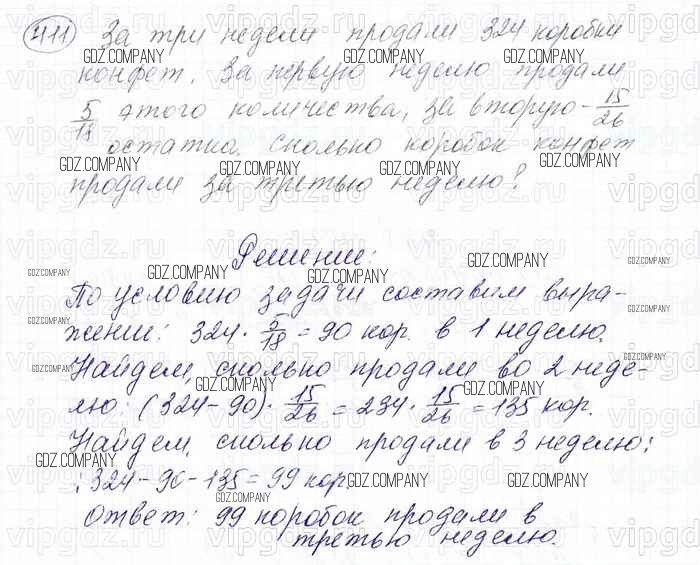 411 За три недели продали 324 коробки
конфет. За первую неделю продали
5/18 этого количества, за вторую – 15/26
остатка. Сколько коробок конфет
продали за третью неделю?
Решение:
По условию задачи составим выра-
жении: 324 · 5/18 = 90 кор. в 1 неделю.
Найдем, сколько продали во 2 неде-
лю: (324 – 90) · 15/26 = 234 · 15/26 = 135 кор.
Найдем, сколько продали в 3 неделю:
: 324 – 90 – 135 = 99 кор.
Ответ: 99 коробок продали в
третью неделю.